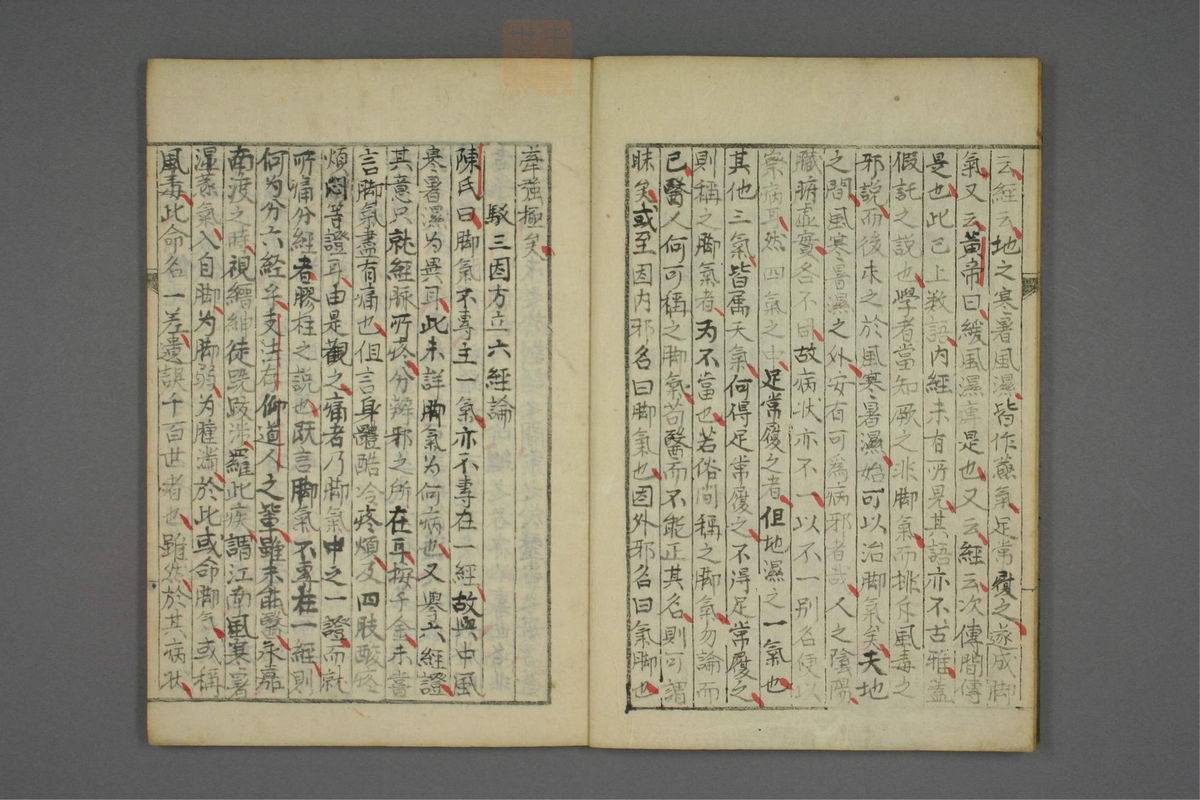 云經云地之寒暑風濕皆作蒸氣足常履之遂成脚
氣又云黃帝曰緩風濕痺是也又云經云次傳間傳
是也此已上數語内經未有所見其語亦不古雅蓋
假託之說也學者當知厥之非脚氣而排斥風毒之
邪說而後求之於風寒暑濕始可以治脚氣矣夫天地
之間風寒暑濕之外安有可為病邪者哉人之陰陽
臟腑虛實各不同故病狀亦不一以不一別名使以
察病耳然四氣之中足常履之者但地濕之一氣也
其他三氣皆属天氣何得足常履之不得足常履之
則稱之脚氣者為不當也若俗間稱之脚氣勿論而
已醫人何可稱之脚氣苟醫而不能正其名則可謂
昧矣或至因内邪名曰脚氣也因外邪名曰氣脚也
牽強極矣
駁三因方立六經論
陳氏曰脚氣不專主一氣亦不專在一經故與中風
寒暑濕為異耳此未詳脚氣為何病也又舉六經證
其意只就經脉所疼分辨邪之所在耳按千金未嘗
言脚氣盡有痛也但言身體酷冷疼煩及四肢酸疼
煩悶等證耳由是觀之痛者乃脚氣中之一證而就
所痛分經者膠柱之說也既言脚氣不專在一經則
何為分六経乎支法存仰道人之輩雖未肅醫永嘉
南渡之時視繒紳徒跣跋涉羅此疾謂江南風寒暑
濕蒸氣入自脚為脚弱為腫満於此或命脚氣或稱
風毒此命名一差遺誤千百世者也雖然於其病状